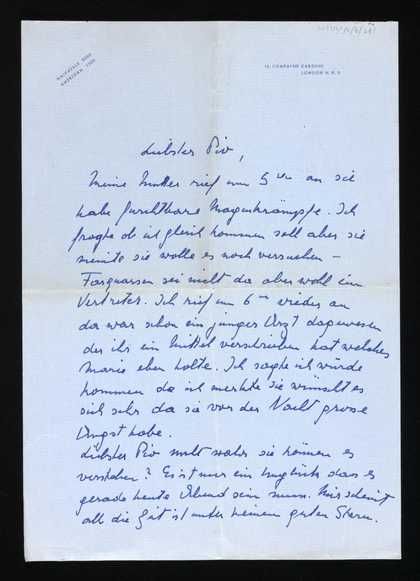 MAIDA VALE
LONDON N.W.6
Liebster Pio,
Meine Mutter rief um 5 Uhr an sie
habe furchtbare Magenkrämpfe. Ich
fragte ob ich gleich kommen soll aber sie
meinte sie wolle es noch versuchen –
Farquarsen sei nicht da aber wohl ein
Vertreter. Ich rief um 6 Uhr wieder an
da war schon ein junger Arzt dagewesen
der ihr ein Mittel verschrieben hat welches
Marie eben holte. Ich sagte ich würde
kommen da ich merkte sie wünscht es
sich sehr da sie vor der Nacht grosse
Angst habe.
Liebster Pio nicht wahr sie können es
verstehen? Es ist nur ein Unglück das es
gerade heute Abend sein muss. Mir scheint
all die Zeit ist unter keinem guten Stern.